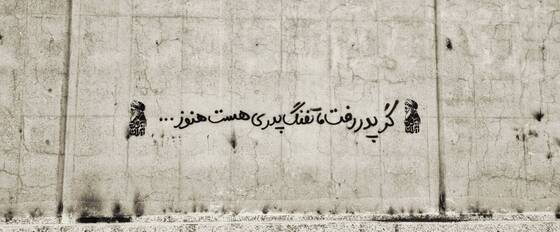 گر پدر رفت، تفنگ پدری هست هنوز ...